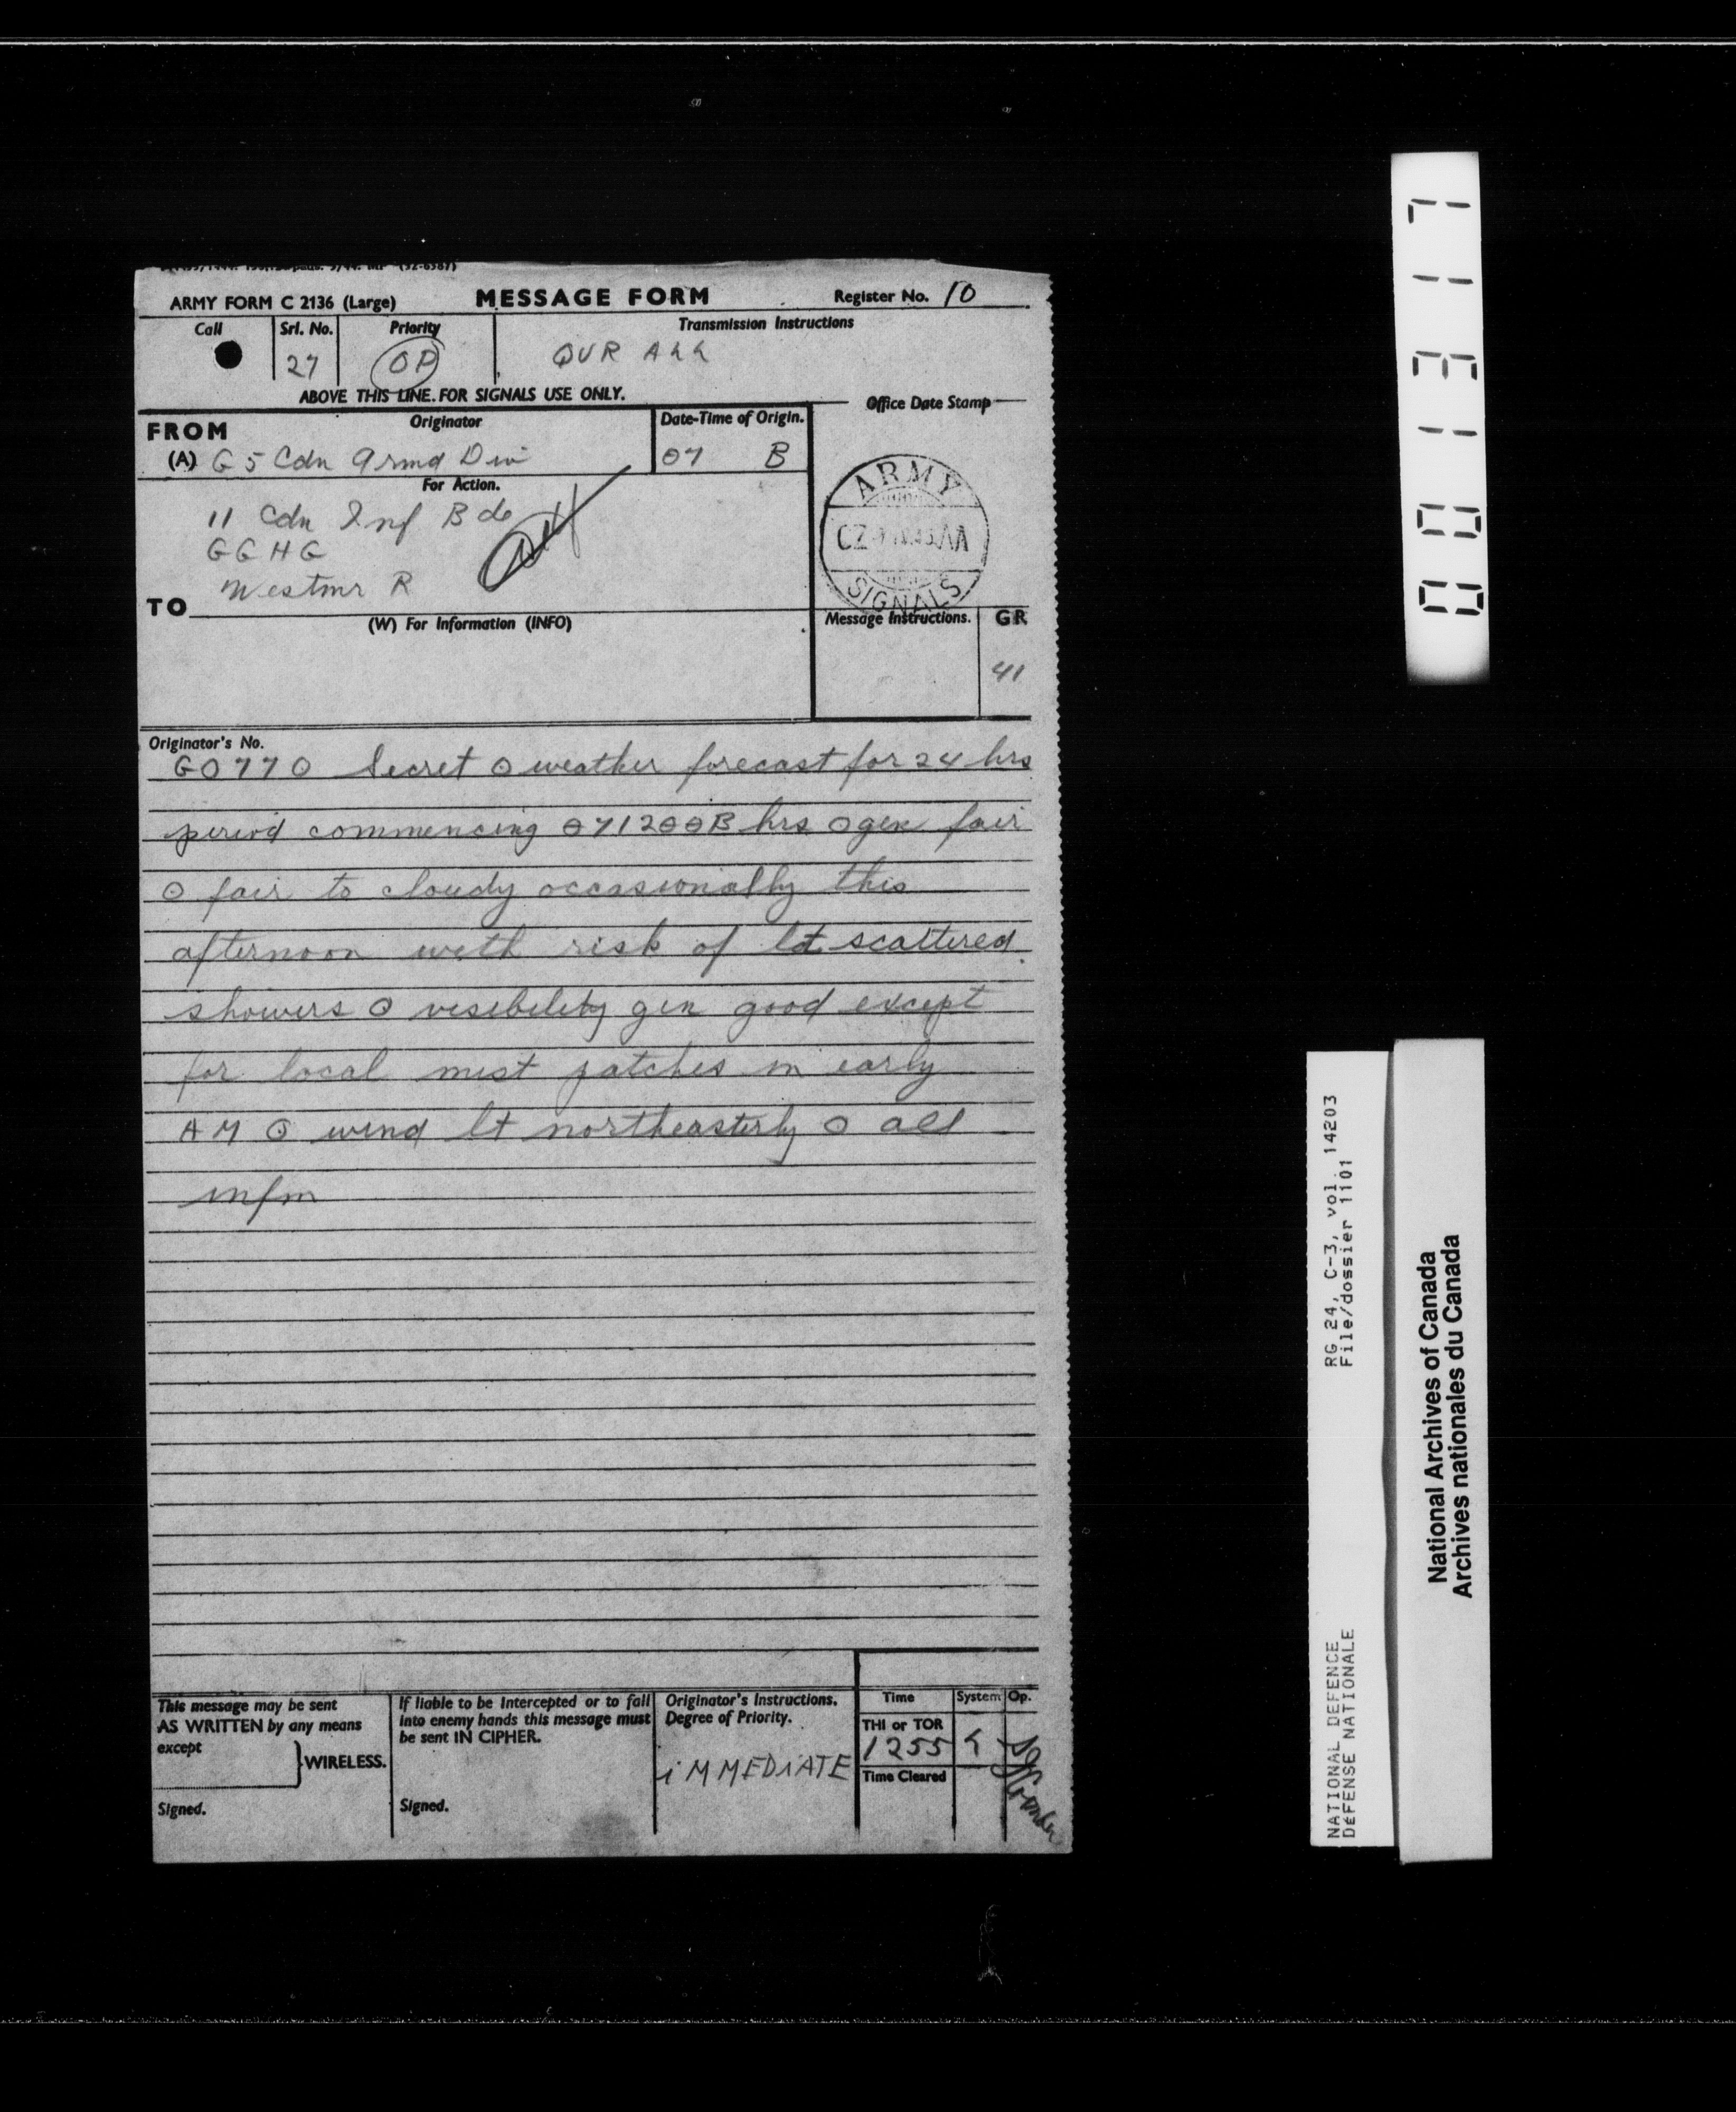 ARMY FORM C 2136 (Large) MESSAGE FORM Register No. 10
Call Srl. No. Priority Transmission Instructions
27 OP QVR ALL
ABOVE THIS LINE FOR SIGNALS USE ONLY.
Office Date Stamp
FROM Originator Date-Time of Origin.
(A) G 5 Cdn Armd Div 07 B
For Action.
11 Cdn Inf Bde
GGHG
Westmr R
TO
(W) For Information (INFO)
ARMY
SIGNALS
Message Instructions. GR
41
Originator's No.
GO770 Secret O weather forecast for 24 hrs
period commencing 071200B hrs O gen fair
O fair to cloudy occasionally this
afternoon with risk of lt scattered
showers O visibility gen good except
for local mist patches in early
AM O wind lt northeasterly O all
infm
This message may be sent
AS WRITTEN by any means
except
WIRELESS.
Signed.
If liable to be intercepted or to fall
into enemy hands this message must
be sent IN CIPHER.
Signed.
Originator's Instructions.
Degree of Priority.
iMMEDiATE
Time System Op.
THI or TOR
1255
Time Cleared
001317
RG 24, C-3, vol. 14203
File/dossier 1101
NATIONAL DEFENCE
DéFENSE NATIONALE
National Archives of Canada
Archives nationales du Canada